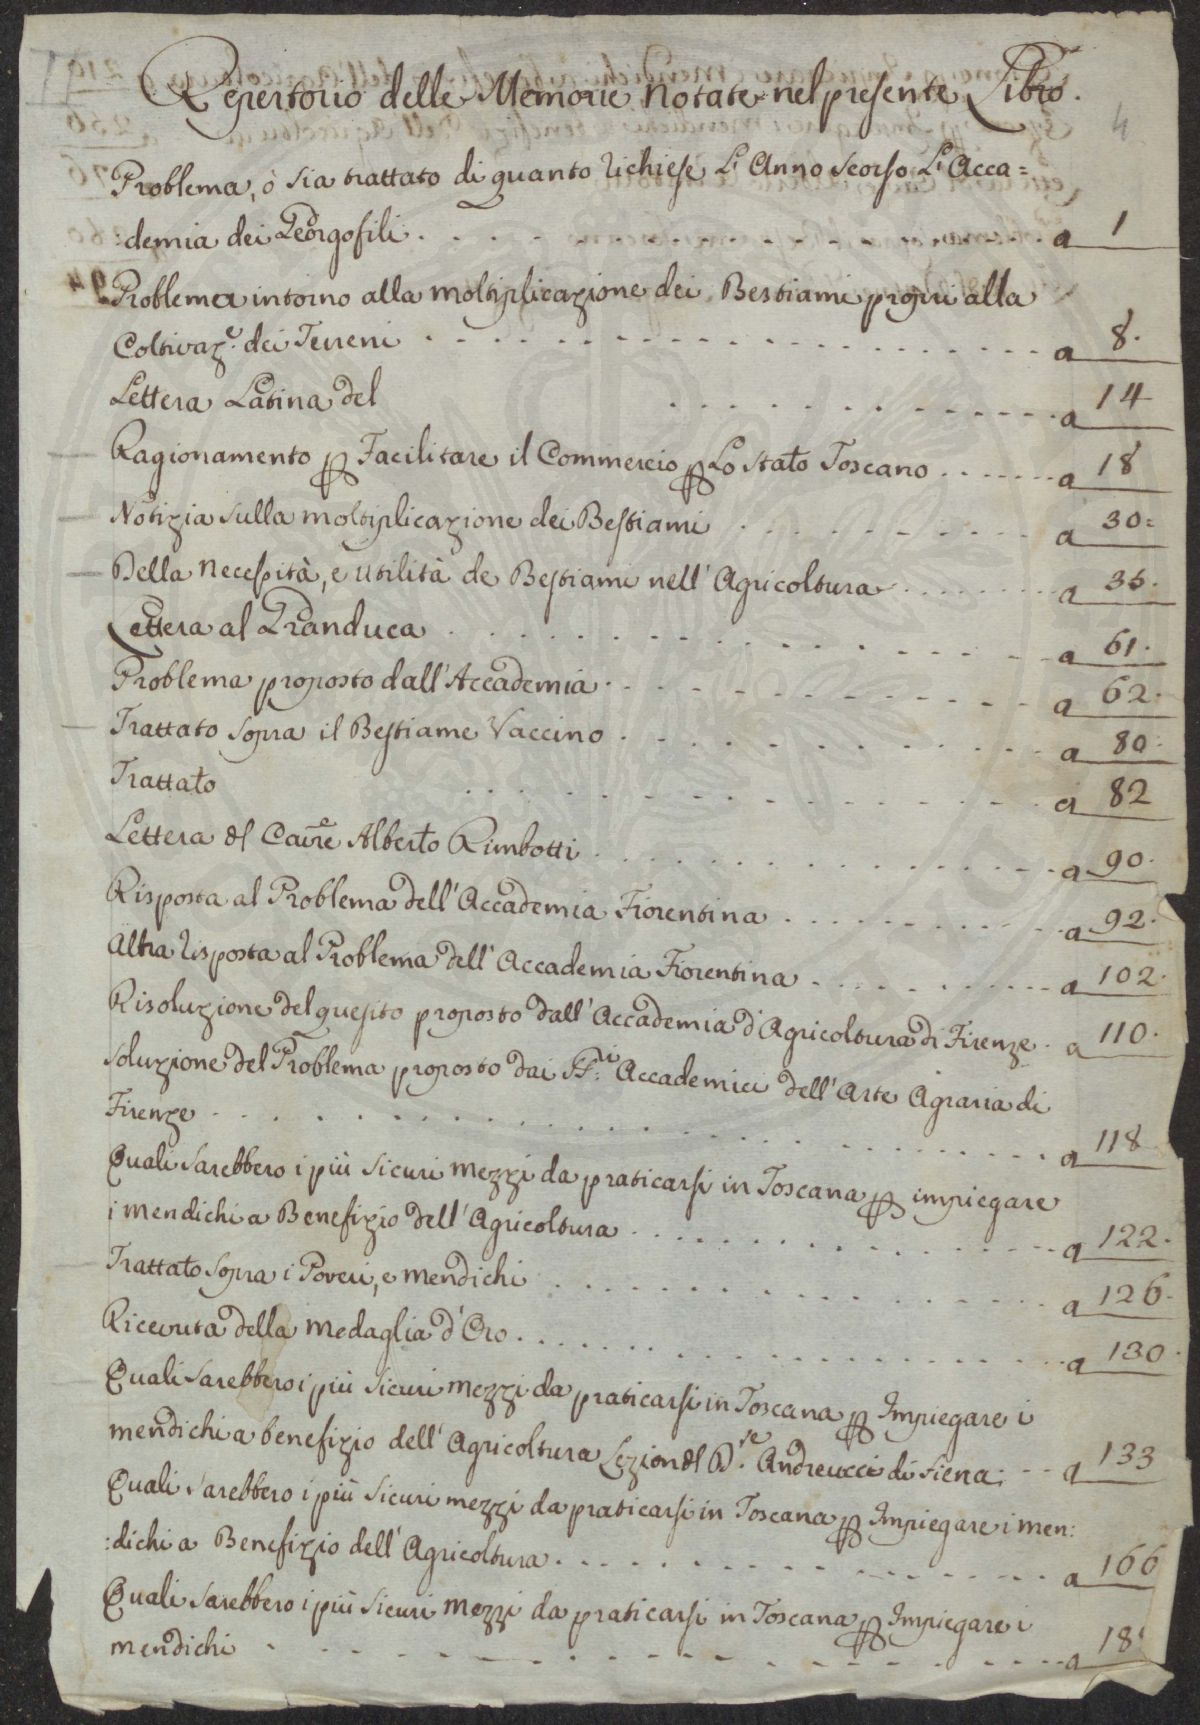 Repertorio delle Memorie Notate nel presente Libro.
4
Problema, ò sia trattato di quanto richiese L'Anno scorso L'Acca=
:demia dei Georgofili . . . . a 1
Problema intorno alla moltiplicazione dei Bestiami proprii alla
Coltivaz.e dei Terreni . . . . a 8.
Lettera Latina del . . . . a 14
Ragionamento ꝑ Facilitare il Commercio ꝑ Lo Stato Toscano . . . . a 18
Notizia sulla moltiplicazione dei Bestiami . . . . a 30=
Della necessità, e utilità de Bestiami nell'Agricoltura . . . . a 35.
Lettera al Granduca . . . . a 61.
Problema proposto dall'Accademia . . . . a 62.
Trattato sopra il Bestiame Vaccino . . . . a 80.
Trattato . . . . a 82
Lettera del Cav.re Alberto Rimbotti . . . . a 90.
Risposta al Problema dell'Accademia Fiorentina . . . . a 92.
Altra risposta al Problema dell'Accademia Fiorentina . . . . a 102.
Risoluzione del quesito proposto dall'Accademia d'Agricoltura di Firenze . a 110.
Soluzione del Problema proposto dai SS.ri Accademici dell'Arte Agraria di
Firenze . . . . a 118
Quali sarebbero i più sicuri mezzi da praticarsi in Toscana ꝑ impiegare
i mendichi a Benefizio dell'Agricoltura . . . . a 122.
Trattato sopra i Poveri, e mendichi . . . . a 126.
Ricevuta della medaglia d'Oro . . . . a 130.
Quali sarebbero i più sicuri mezzi da praticarsi in Toscana ꝑ Impiegare i
mendichi a benefizio dell'Agricoltura Lezion del D.re Andreucci di Siena: . . a 133
Quali sarebbero i più sicuri mezzi da praticarsi in Toscana ꝑ Impiegare i men:
:dichi a Benefizio dell'Agricoltura . . . . a 166
Quali sarebbero i più sicuri mezzi da praticarsi in Toscana ꝑ Impiegare i
mendichi . . . . a 18